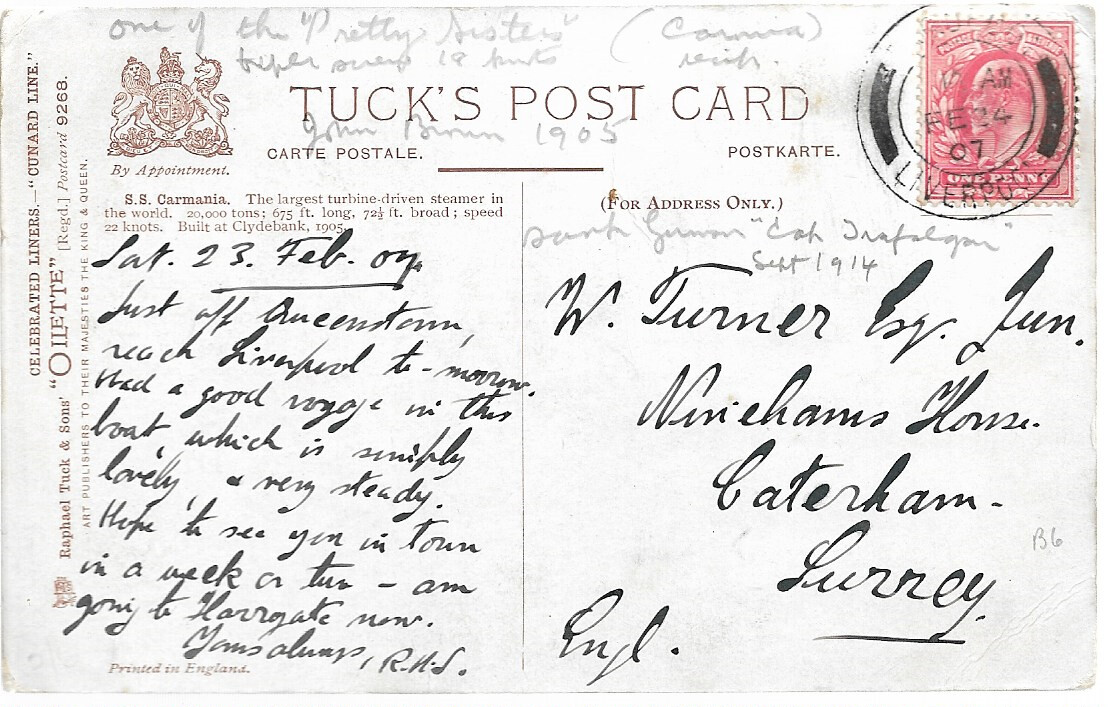 one of the "Pretty Sisters" (Caronia)
triple screw 18 knots
TUCK'S POST CARD
John Brown 1905
CARTE POSTALE.
POSTKARTE.
By Appointment.
S.S. Carmania. The largest turbine-driven steamer in
the world. 20,000 tons; 675 ft. long, 72½ ft. broad; speed
22 knots. Built at Clydebank, 1905.
CELEBRATED LINERS.—"CUNARD LINE."
Raphael Tuck & Sons' "OILETTE" [Regd.] Postcard 9268.
ART PUBLISHERS TO THEIR MAJESTIES THE KING & QUEEN.
Sat. 23. Feb. 07.
Just off Queenstown,
reach Liverpool to-morrow.
Had a good voyage in this
boat, which is simply
lovely, & very steady.
Hope to see you in town
in a week or two - am
going to Harrogate now.
Yours always, R.H.S.
Printed in England.
(FOR ADDRESS ONLY.)
sank German "Cap Trafalgar"
Sept 1914
W. Turner Esq. Jun.
Ninehams House.
Caterham-
Surrey.
Engl.
B6
12 AM
FE 24
07
LIVERPO
ONE PENNY